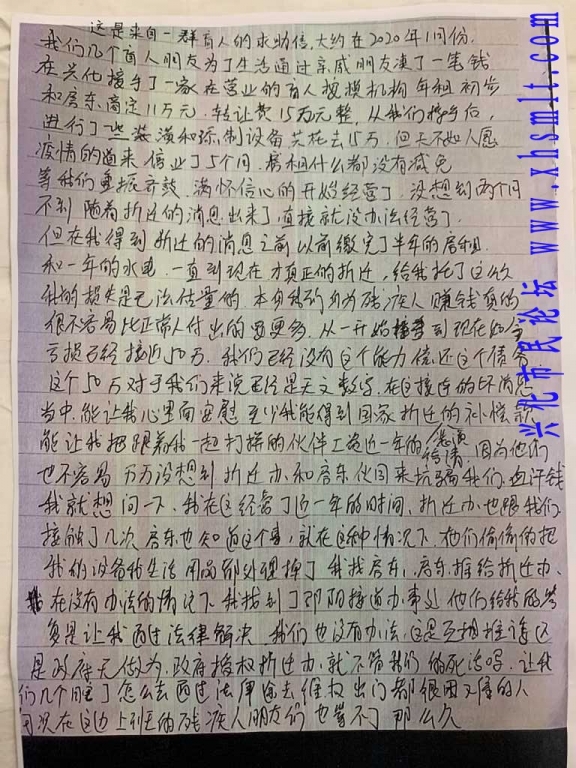 这是来自一群盲人的求助信,大约在2020年1月份.
我们几个盲人朋友为了生活通过亲戚朋友凑了一笔钱
在兴化接手了一家在营业的盲人按摩机构年租初步
和房东商定11万元.转让费15万元整,从我们接手后,
进行了些装潢和添制设备共花去15万.但天不如人愿
疫情的道来停业了5个月.房租什么都没有减免
等我们重振旗鼓.满怀信心的开始经营了.没想到两个月
不到随着拆迁的消息出来了直接就没办法经营了.
但在我得到拆迁的消息之前以前缴完了半年的房租.
和一年的水电.一直到现在才真正的拆迁,给我托了这么
的损失是无法估量的.本身我们身为残疾人赚钱真的
很不容易比正常人付出的要更多.从一开始接手到现在
亏损已经接近50万.我们已经没有这个能力偿还这个债务
这个50万对于我们来说已经是天文数字.在这接连的坏消息
当中,能让我心里面安慰至少我能得到国家拆迁的补偿款
能让我把跟着我一起打拼的伙伴工资近一年的 因为他们
也不容易万万没想到拆迁办和房东伙同来坑骗我们血汗钱
我就想问一下,我在这经营了近一年的时间,拆迁办也跟我们
接触了几次房东也知道这个事,就在这种情况下.他们偷偷的把
我的设备和生活用品都处理掉了我找房东,房东推给拆迁办.
在没有办法的情况下我找到了 阳街道办事处他们给我的答
复是让我通过法律解决.我们也没有办法.这是互相推诿还
是政府无做为.政府授权拆迁办.就不管我们的死活吗.让我
们几个瞎了怎么去通过法律途去维权出门都很困难的人
何况在这边上到五级残疾人朋友们也等不了那么久
兴化市民论坛 www.xhsmlt.com